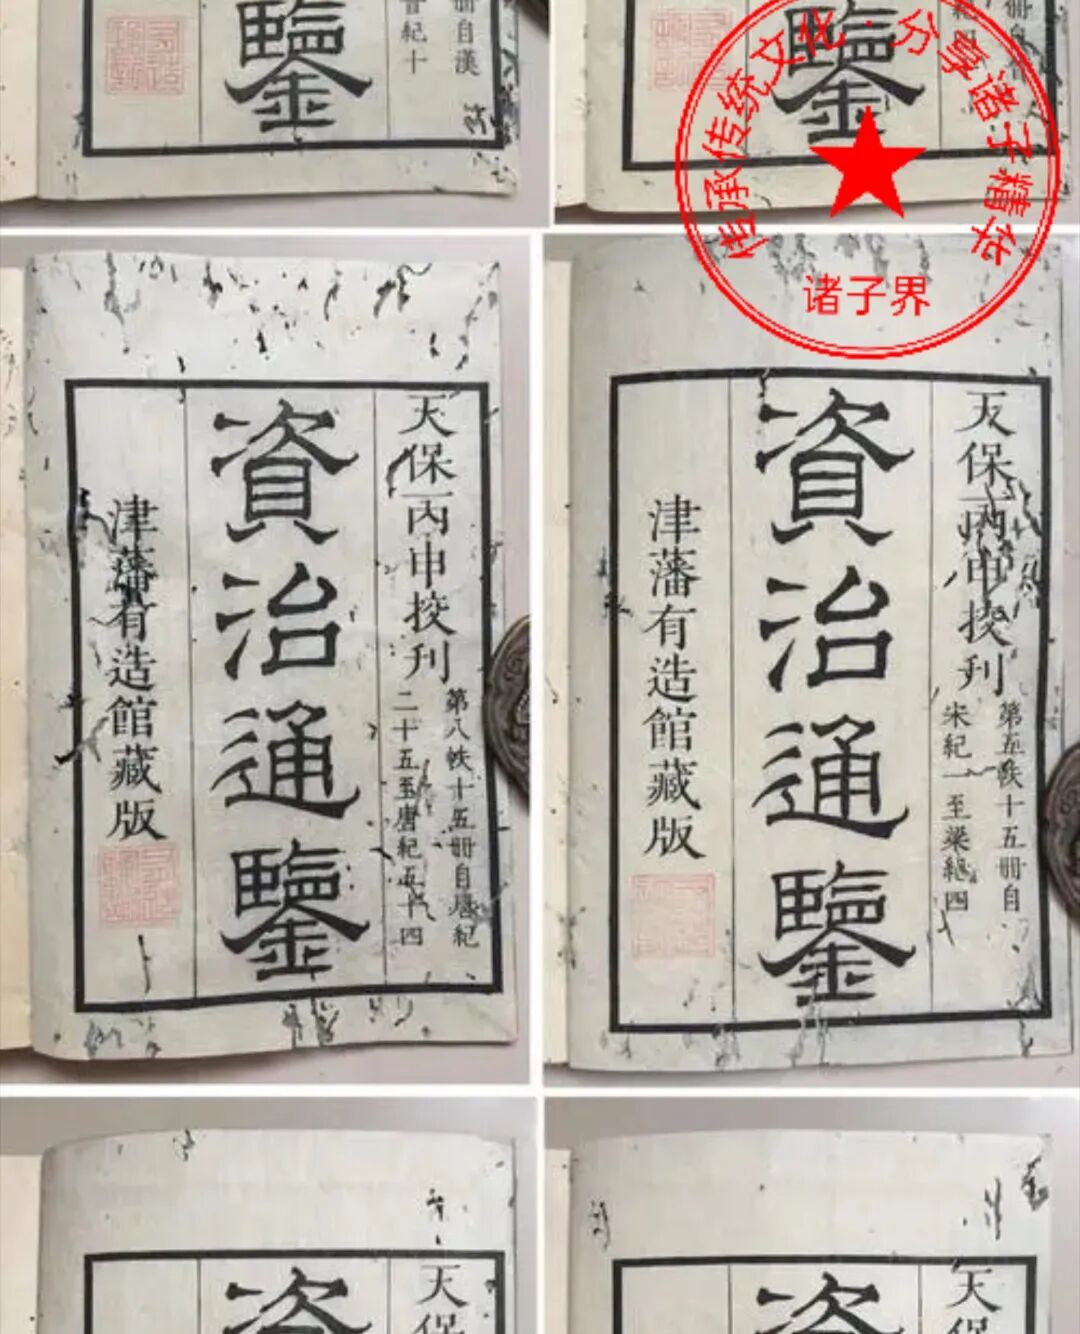 冊自漢
晉紀十
鑒
鑒
传承传统文化·分享诸子精华
诸子界
天保丙申挍刊
第八帙十五冊自唐紀
二十五至唐紀五十四
資治通鑒
津藩有造館藏版
天保丙申挍刊
第五帙十五冊自
宋紀一至梁紀四
資治通鑒
津藩有造館藏版
天保
資
天保
資